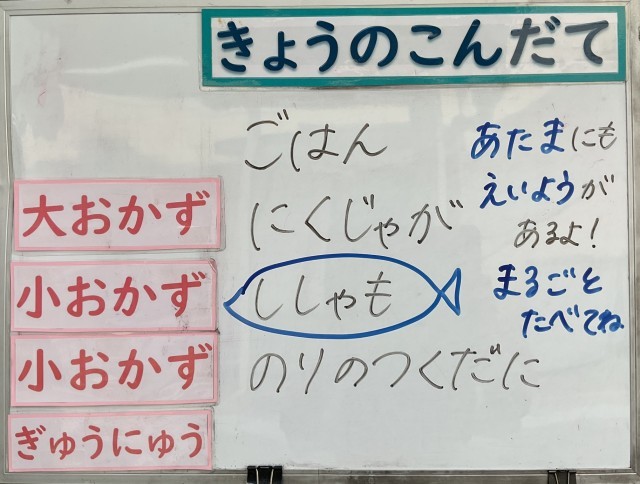 きょうのこんだて
ごはん
大おかず にくじゃが
小おかず ししゃも
小おかず のりのつくだに
ぎゅうにゅう
あたまにも
えいようが
あるよ!
まるごと
たべてね